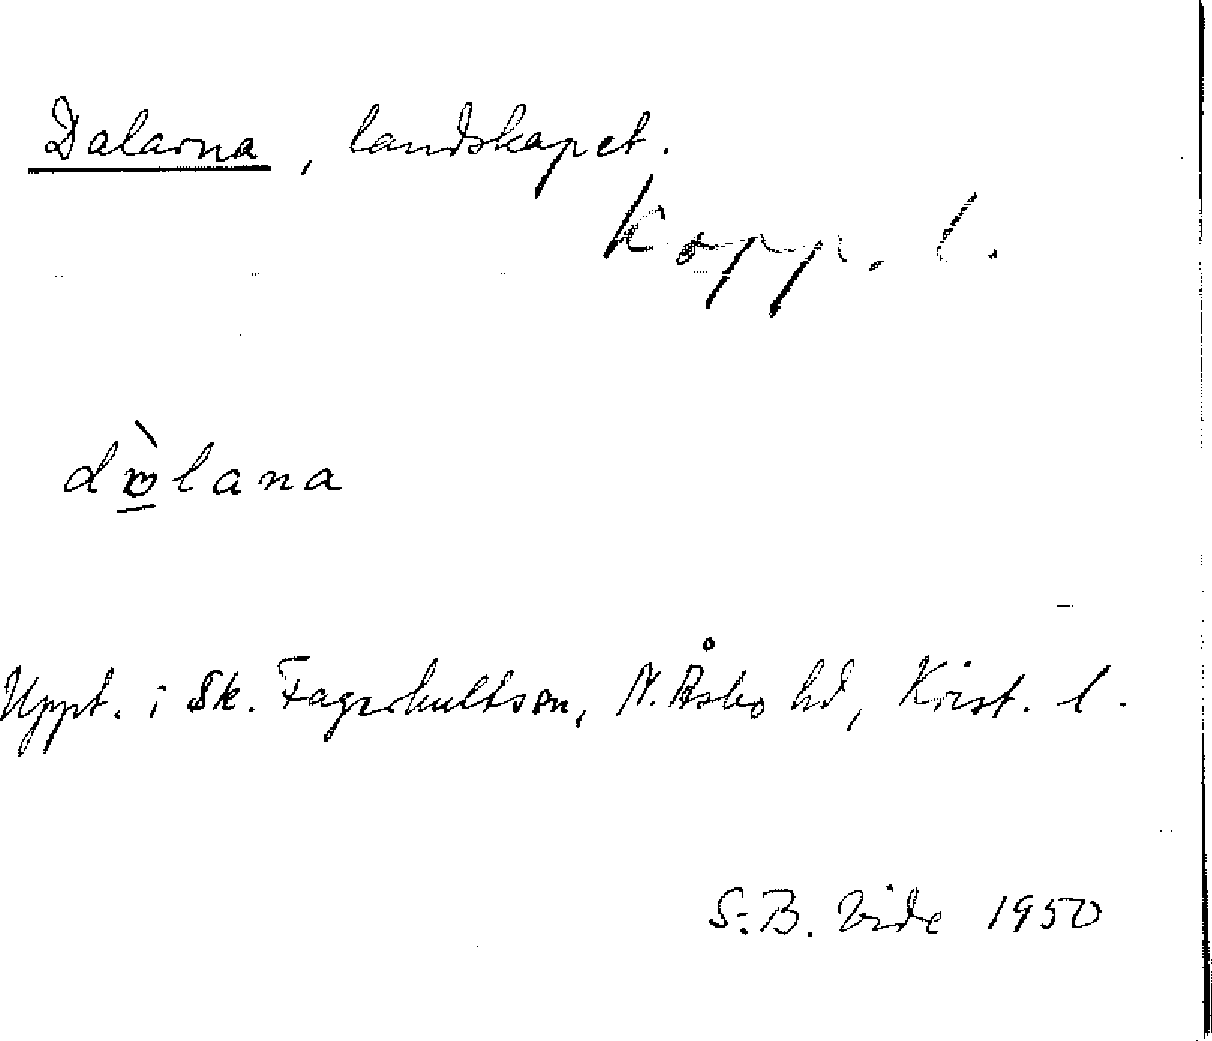 Dalarna, landskapet.
Kopp. l.
Uppt. i Sk. Fagerhultson, N. Åsbo hd, Krist. l.
S.B. Vide 1950